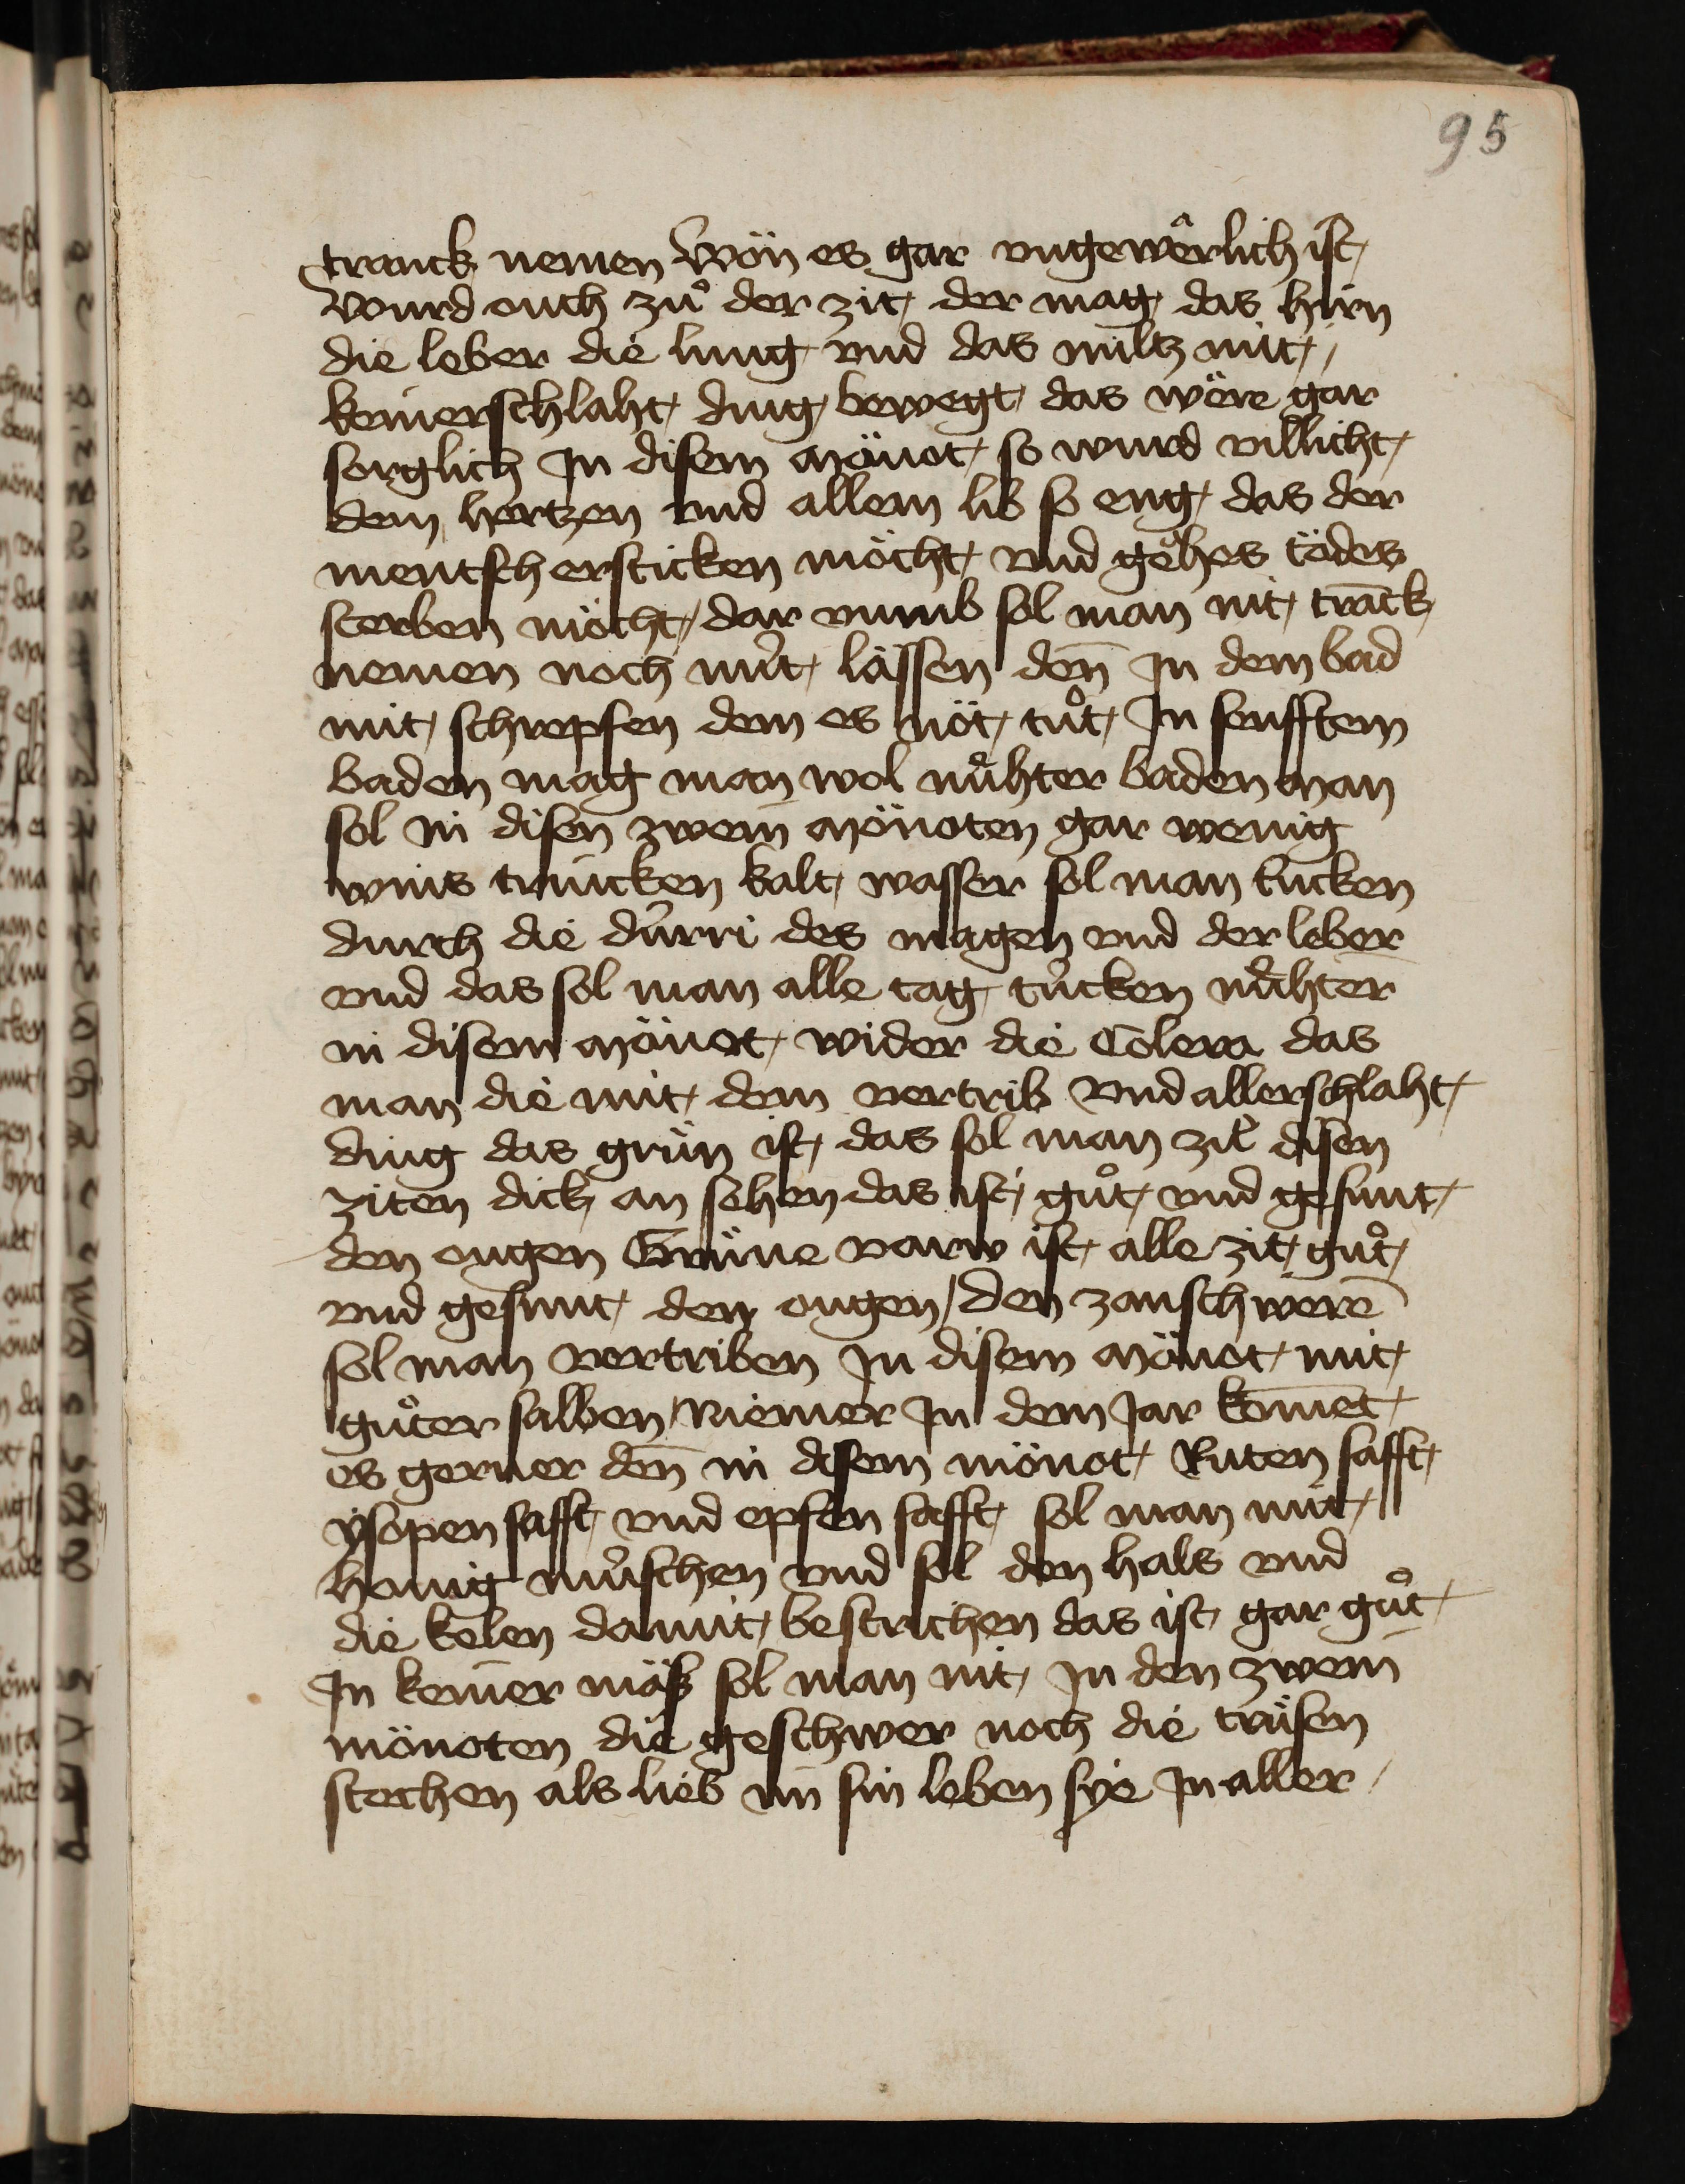 95
tranck nemen Wön es gar vngewerlich ist,
Wurd ouch zuͦ der zit, der mag, das hirn
die leber die lung vnd das miltz mit,
keinerschlaht, ding, bewegt, das wͤre gar
sorglich Jn disem Mönot, so wurd villicht,
dem hertzen vnd allem lib so eng, das der
mentsch ersticken möcht, vnd gͤhes tödes
sterben möcht, dar vmmb sol man nit, tranck
nemen noch nüt, lässen den̄ Jn dem bad
mit, schrepfen dem es nöt, tuͦt, Jn senfftem
baden mag man wol nüͤhter baden Man
sol in disen zwein Mönoten gar wenig
wins trincken kalt, wasser sol man tricken
durch die dürri des magen vnd der leber
vnd das sol man alle tag, tricken nüͤhter
in disem Mönot, wider die Colera das
man die mit, dem vertrib Vnd allerschlaht,
ding das grün ist, das sol man zuͦ disen
ziten dick, an sehen das ist, guͦt, vnd gesunt,
den ougen Grüne varw ist, alle zit, guͦt,
vnd gesunt, den ougen / den zanschwerē
sol man vertriben Jn disem Mönot, mit,
guͦter salben / Niemer Jn dem Jar komet,
es gerner den̄ in disem mönot, Ruten safft,
ysopen safft, vnd epfen safft, sol man mit,
honig müschen vnd sol den hals vnd
die kelen damit, bestrichen das ist, gar guͦt,
Jn keiner mäß sol man nit, Jn den zwein
mönoten die geschwer noch die träsen
stechen als lieb im sin leben sye Jn aller